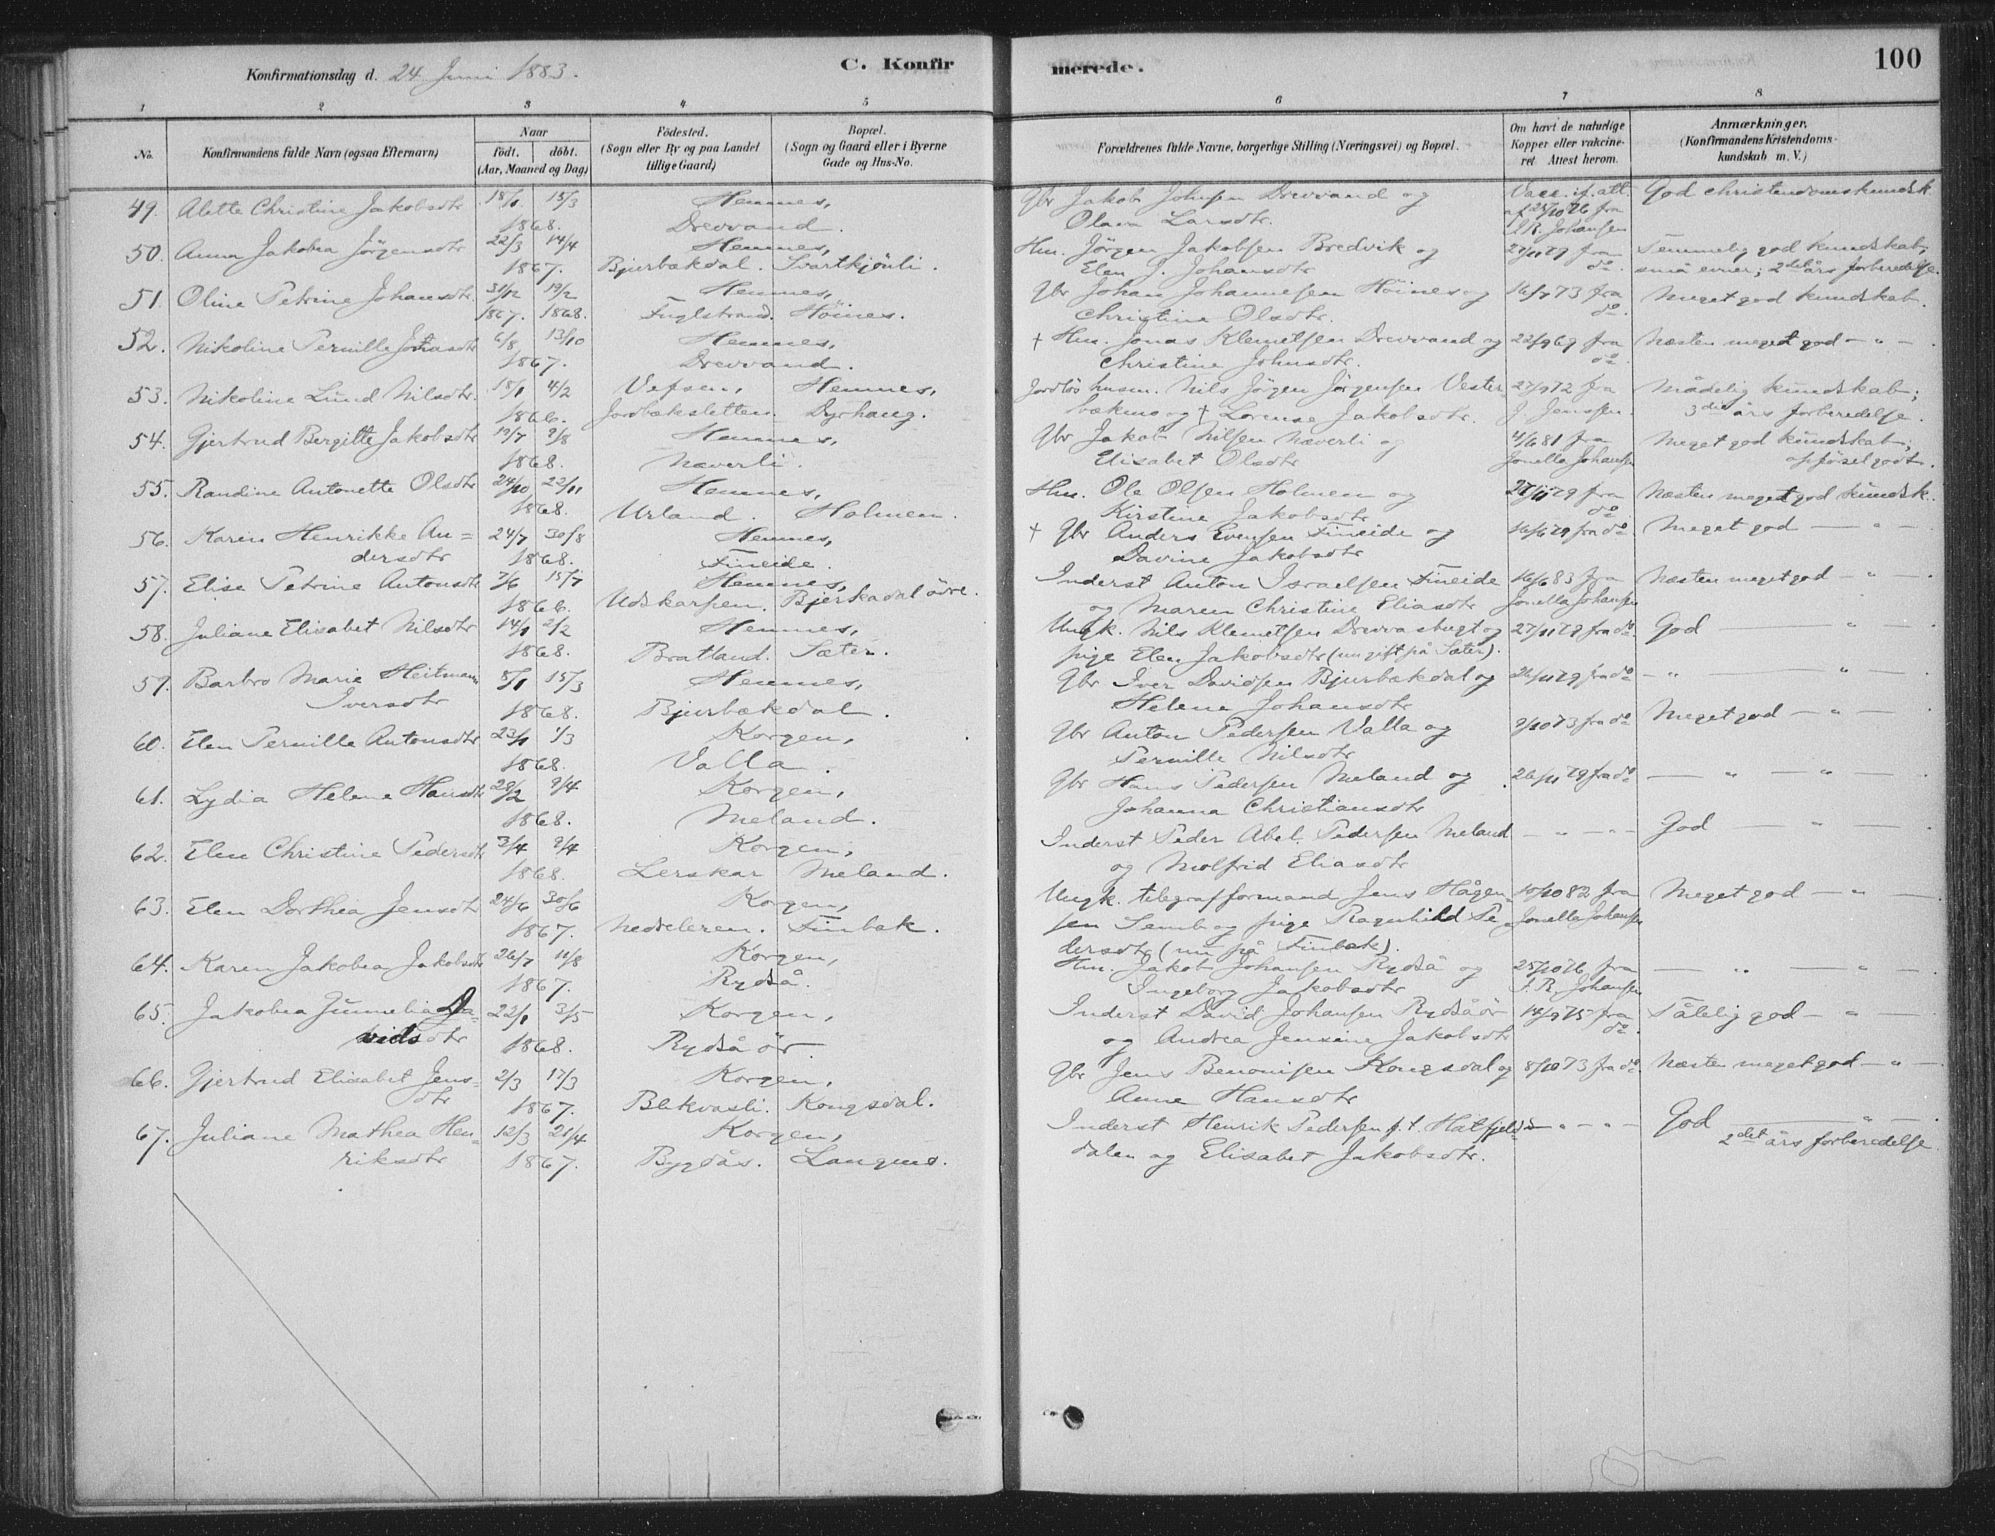 Konfirmationsdag d. 24 Juni 1883.
C. Konfir
merede.
100
1 2 3 4 5 6 7 8
No.
Konfirmandens fulde Navn (ogsaa Efternavn)
Naar
födt. döbt.
(Aar, Maaned og Dag)
Födested.
(Sogn eller By og paa Landet
tillige Gaard)
Bopæl.
(Sogn og Gaard eller i Byerne
Gade og Hus-No.
Forældrenes fulde Navne, borgerlige Stilling (Næringsvei) og Bopæl.
Om havt de naturlige
Kopper eller vakcine-
ret Attest herom.
Anmærkninger.
(Konfirmandens Kristendoms-
kundskab m. V.)
49. Alette Christine Jakobsdtr 18/1 15/3 Hemnes, Gbr Jakob Johnsen Drevvand og Vacc. if. att. God christendomskundsk
1868. Drevvand. Olava Larsdtr. af 25/10 76 fra
J. R. Johansen
50. Anna Jakobea Jörgensdtr 22/3 14/4 Hemnes, Hm. Jörgen Jakobsen Bredvik og 27/11 79 fra Temmelig god kundskab,
1867. Bjurbækdal. Svartkjönli. Elen J. Johansdtr do. små evner; 2det års forberedelse.
51. Oline Petrine Johansdtr. 31/12 19/2 Hemnes, Gbr Johan Johannesen Höines og 16/7 73 fra Meget god kundskab.
1867. 1868. Fuglstrand. Höines. Christine Olsdtr. do.
52. Nikoline Pernille Jonasdtr 6/8 13/10 Hemnes, † Hm. Jonas Klemetsen Drevvand og 22/9 69 fra Næsten meget god — " —
1867. Drevvand. Christine Johnsdtr. do.
53. Nikoline Lund Nilsdtr. 18/1 4/2 Vefsen, Hemnes, Jordlös husm. Nils Jörgen Jörgensen Vester- 27/9 72 fra Mådelig kundskab;
1866. Jordbæksletten. Dyrhaug. bækmo og † Lorense Jakobsdtr. J. Jenssen. 3die års forberedelse.
54. Gjertrud Bergitte Jakobsdtr 19/7 9/8 Hemnes, Gbr Jakob Nilsen Næverli og 4/6 81 fra Meget god kundskab;
1868. Næverli. Elisabet Olsdtr Jonella Johansen opförsel godt.
55. Randine Antonette Olsdtr 24/10 22/11 Hemnes, Hm. Ole Olsen Holmen og 27/11 79 fra Næsten meget god kundsk.
1868. Urland. Holmen. Kirstine Jakobsdtr do
56. Karen Henrikke An- 24/7 30/8 Hemnes, † Gbr Anders Evensen Fineide og 16/6 79 fra do Meget god — " —
dersdtr 1868. Fineide. Davine Jakobsdtr
57. Elise Petrine Antonsdtr 7/6 15/7 Hemnes, Inderst Anton Israelsen Fineide 16/6 83 fra Næsten meget god — " —
1866. Udskarpen. Bjerkadal övre. og Maren Christine Eliasdtr Jonella Johansen
58. Juliane Elisabet Nilsdtr 14/1 2/2 Hemnes, Ungk. Nils Klemetsen Drevvasbugt og 27/11 79 fra do God — " —
1868. Bratland. Sæter. pige Elen Jakobsdtr (nu gift på Sæter).
59. Barbro Marie Heitmann 8/1 15/3 Hemnes, Gbr Iver Davidsen Bjurbækdal og 26/11 79 fra do — " — " —
Iversdtr 1868. Bjurbækdal. Helene Johansdtr
60. Elen Pernille Antonsdtr 23/1 1/3 Korgen, Gbr Anton Pedersen Valla og 9/10 73 fra do Meget god — " —
1868. Valla. Pernille Nilsdtr
61. Lydia Helene Hansdtr 28/2 9/4 Korgen, Gbr Hans Pedersen Meland og 26/11 79 fra do — " — " —
1868. Meland. Johanna Christiansdtr
62. Elen Christine Pedersdtr 3/4 9/4 Korgen, Inderst Peder Abel Pedersen Meland — " — " — God — " —
1868. Lerskar Meland. og Molfrid Eliasdtr
63. Elen Dorthea Jensdtr 24/6 30/6 Korgen, Ungk. telegrafformand Jens Hågen- 10/10 82 fra Meget god — " —
1867. Nedreleren. Finbak. sen Semb og pige Ragnhild Pe- Jonella Johansen
dersdtr (nu på Finbak).
64. Karen Jakobea Jakobsdtr 26/7 11/8 Korgen, Hm. Jakob Johansen Rydså og 25/10 76 fra — " — " —
1867. Rydså. Ingeborg Jakobsdtr J. R. Johansen
65. Jakobea Gunnelia Da- 22/1 3/5 Korgen, Inderst David Johansen Rydsåör 14/9 75 fra Tålelig god — " —
vidsdtr 1868. Rydså ör. og Andrea Jensine Jakobsdtr do.
66. Gjertrud Elisabet Jens- 2/3 17/3 Korgen, Gbr Jens Benonisen Kongsdal og 8/10 73 fra do. Næsten meget god — " —
dtr 1867. Blekvasli. Kongsdal. Anne Hansdtr
67. Juliane Mathea Hen- 12/3 21/4 Korgen, Inderst Henrik Pedersen f. t. Hatfjeld- — " — " — God — " —
riksdtr 1867. Bygdås. Langnes. dalen og Elisabet Jakobsdtr. 2det års forberedelse.